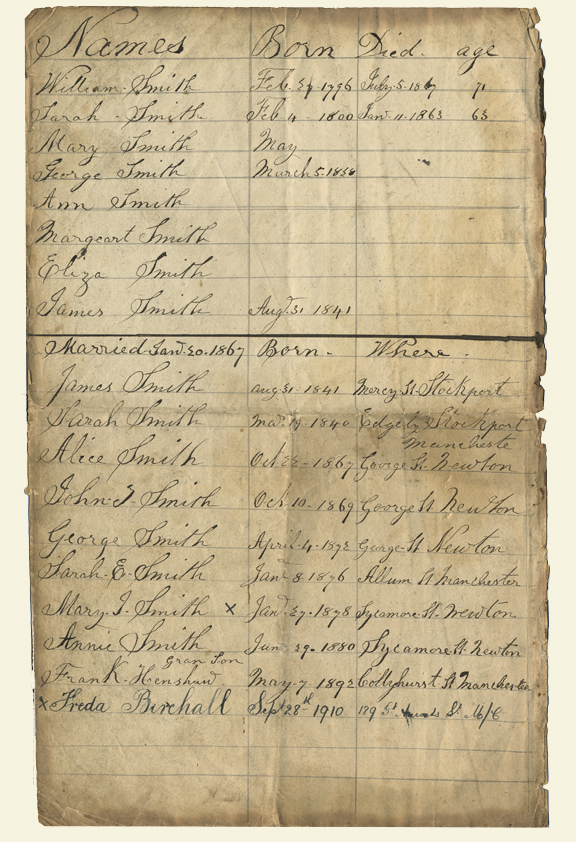 Names Born Died. age
William Smith Feb. 27-1796 July 5-1867 71
Sarah - Smith Feb 4 - 1800 Jan. 11-1863 63
Mary Smith May
George Smith March 5.1838
Ann Smith
Margeart Smith
Eliza Smith
James Smith Augt. 31 1841
Married Jan. 20. 1867 Born. Where.
James Smith aug 31 - 1841 Mercy St Stockport
Sarah Smith 1840 Stockport
Mancheste
Alice Smith Oct 22 - 1867 George St. Newton
John Smith Oct 10 - 1869 George St Newton
George Smith April - 4 - 1872 George St Newton
Sarah. E. Smith Jany 8 - 1876 Allum St Manchester
Mary. J. Smith x Jany. 27 - 1878 Sycamore St. Newton
Annie Smith Jun 29. - 1880 Sycamore St. Newton
Gran Son
Frank Henshaw May - 7. 1892 Collyhurst St Manchester
x Freda Birchall Sept 28th 1910 189 St St M/C